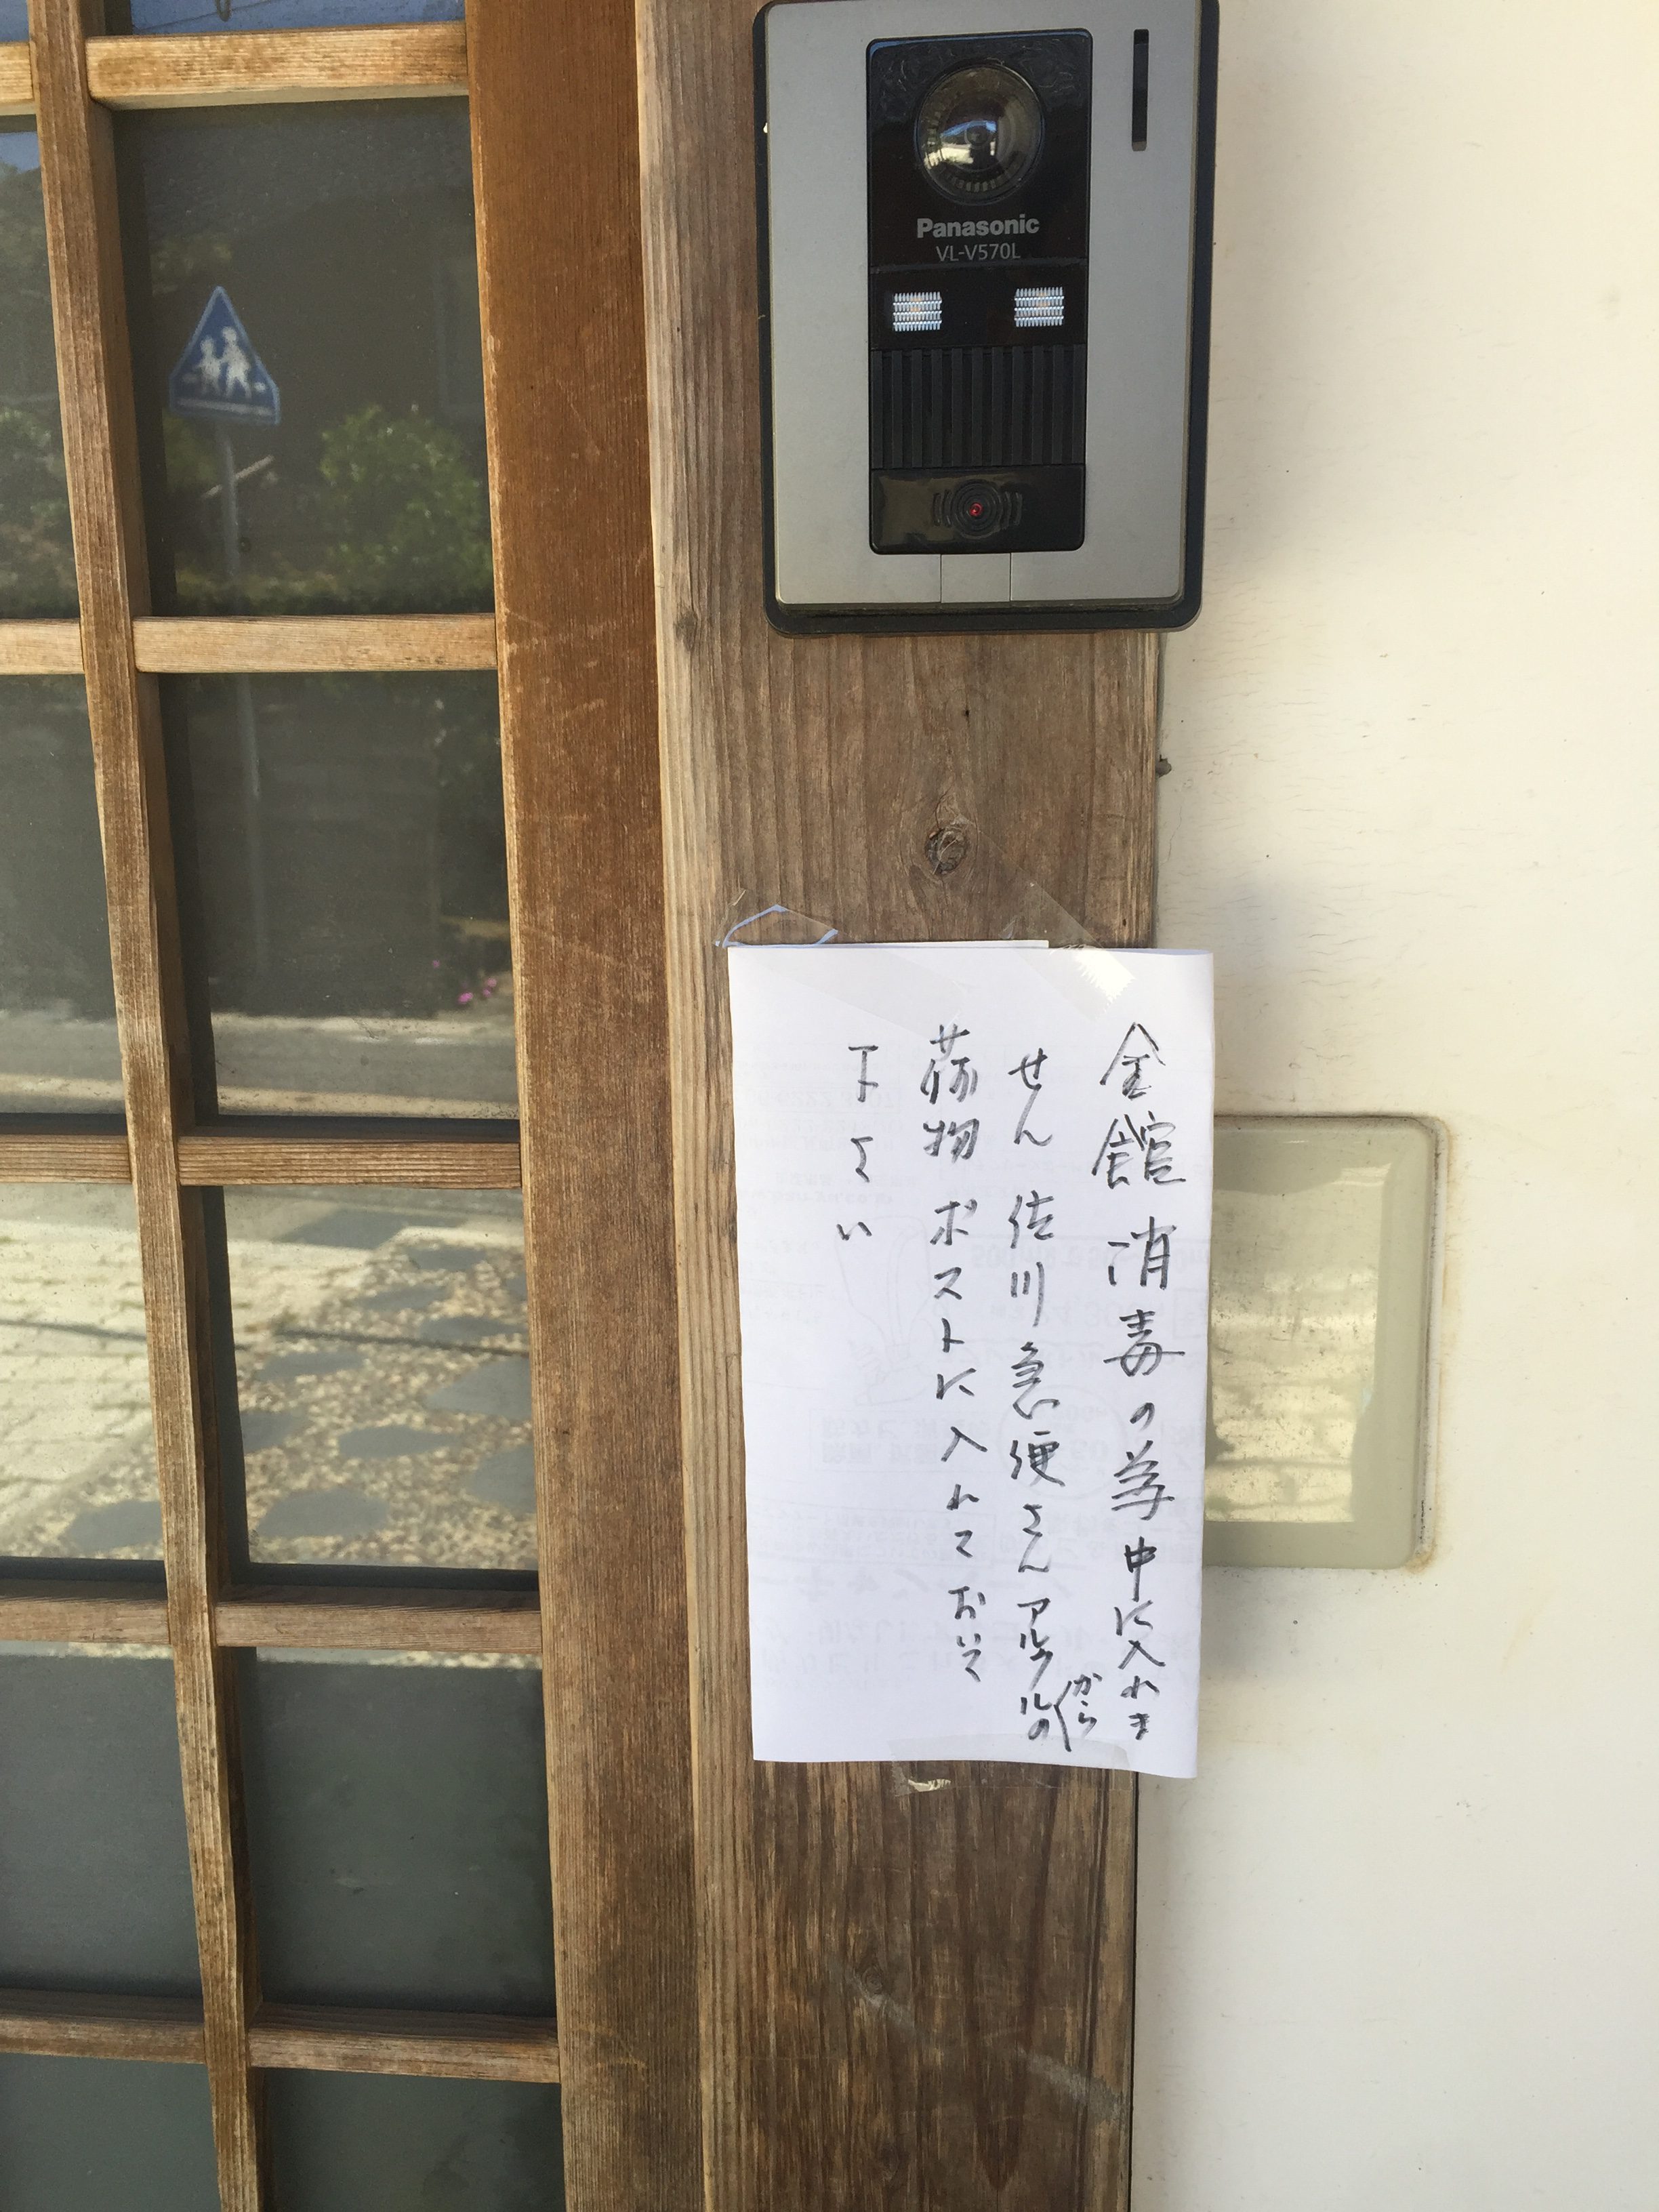 Panasonic
VL-V570L
全館消毒の為中に入れま
せん佐川急便さんアルタルの
から
荷物ポストに入れておいて
下さい